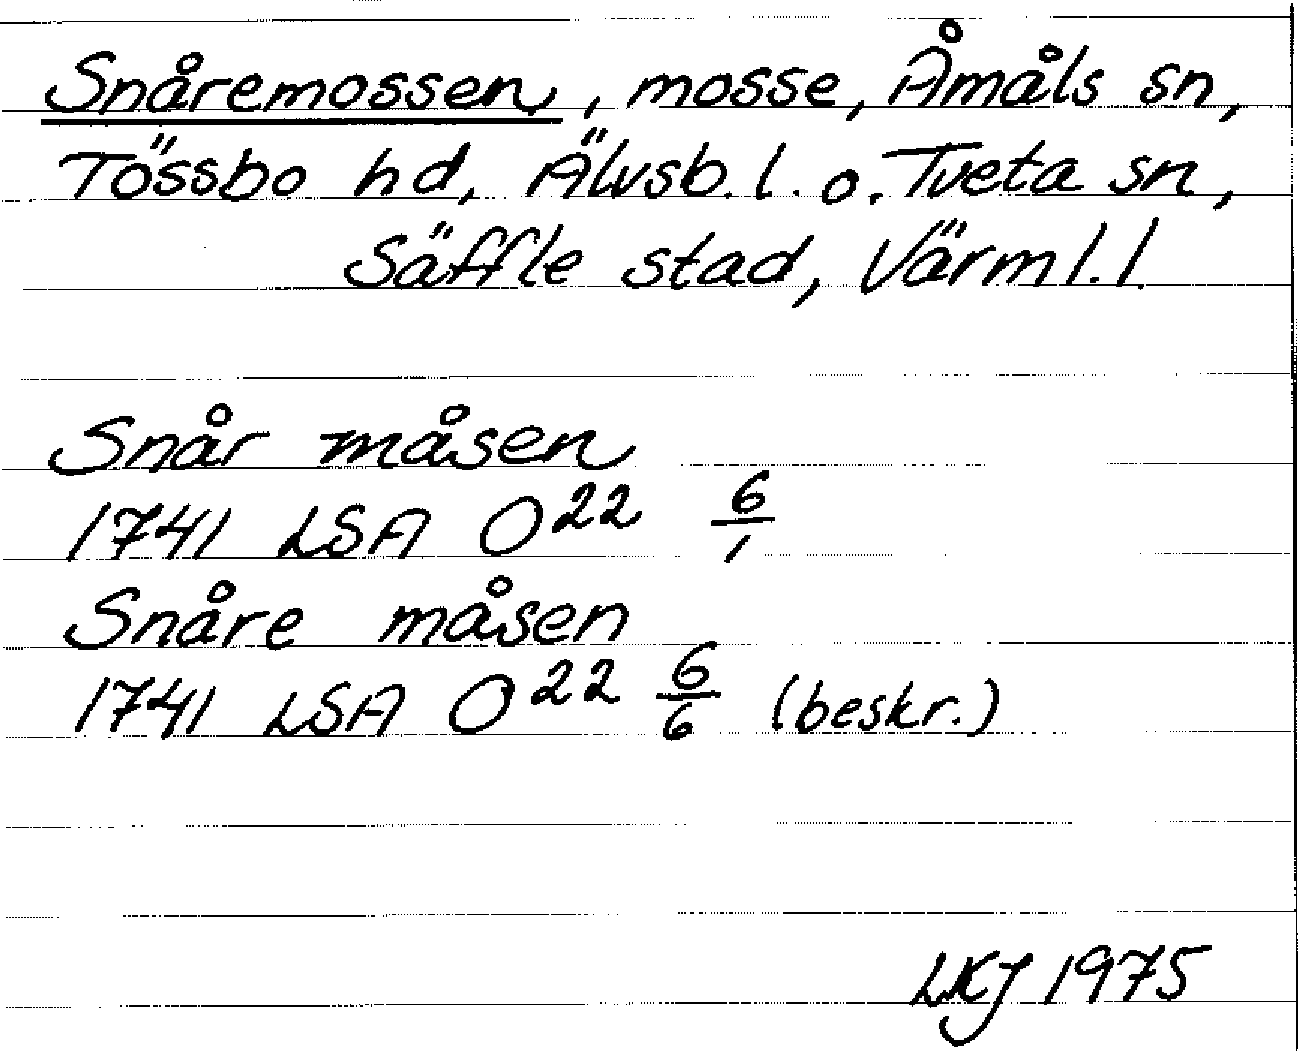 Snåremossen, mosse, Åmåls sn,
Tössbo hd, Älvsb. l. o. Tveta sn,
Säffle stad, Värml. l.
Snår måsen
1741 LSA O²² 6/1
Snåre måsen
1741 LSA O²² 6/6 (beskr.)
LKJ 1975